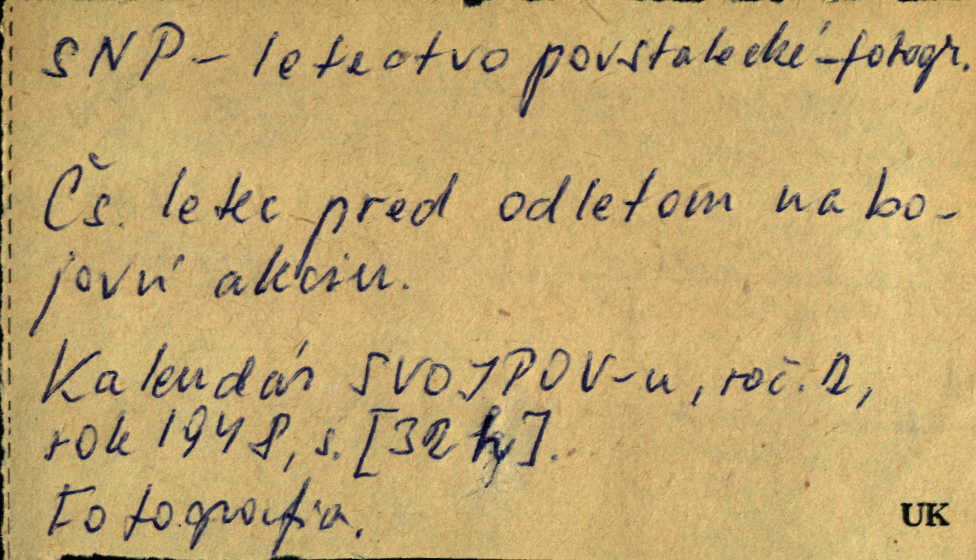 SNP – letectvo povstalecké – fotogr.
Čs. letec pred odletom na bo-
jovú akciu.
Kalendár SVOJPOV-u, roč. 2,
rok 1948, s. [32
Fotografia.
UK